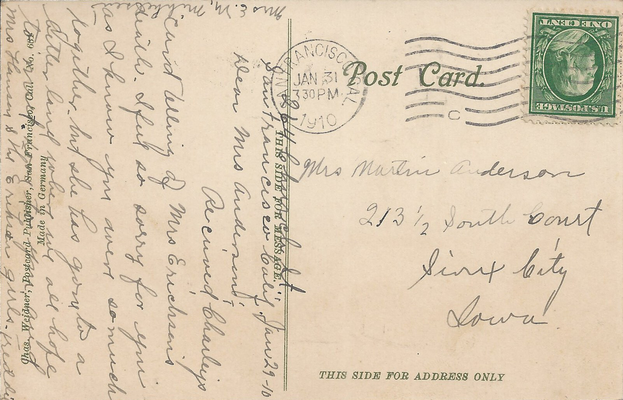 Post Card.
SAN FRANCISCO, CAL.
JAN 31
3 30 PM
1910
C
ONE CENT
U.S. POSTAGE
Mrs Martin Anderson
213 1/2 South Court
Sioux City
Iowa.
THIS SIDE FOR ADDRESS ONLY
THIS SIDE FOR MESSAGE
Chas. Weidner, Postcard-Publisher, San Francisco, Cal. No.
Made in Germany
San Francisco Calif., Jan 29-10
Dear Mrs Anderson,
Recived Charleys
card telling of Mrs Erichsens
death. I feel so sorry for you
as I know you were so much
together, but she has gone to a
better land where we all hope
to
Mrs Hansen & Mr Erichsen girls
Mrs E. M.